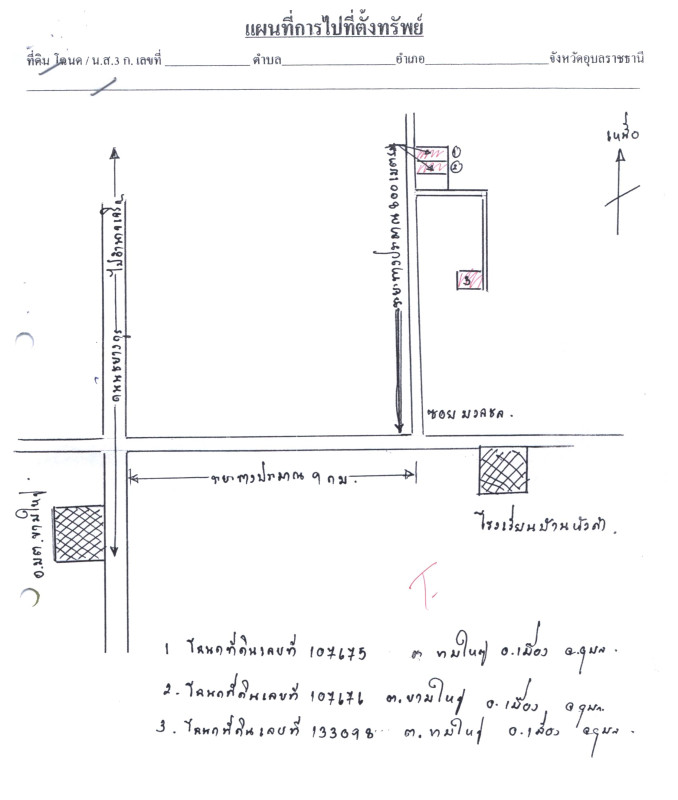 แผนที่การไปที่ตั้งทรัพย์
ที่ดิน โฉนด / น.ส.3 ก. เลขที่ ตำบล อำเภอ จังหวัดอุบลราชธานี
เหนือ
1
2
3
ไปอำนาจเจริญ
ถนนชยางกูร
ระยะทางประมาณ 900 เมตร
ซอย มงคล.
ระยะทางประมาณ 9 กม.
อ.บ.ต. ขามใหญ่
โรงเรียนบ้านหัวคำ.
1 โฉนดที่ดินเลขที่ 107675 ต ขามใหญ่ อ.เมือง จ.อุบล.
2. โฉนดที่ดินเลขที่ 107676 ต.ขามใหญ่ อ.เมือง จ.อุบล.
3. โฉนดที่ดินเลขที่ 133098 ต.ขามใหญ่ อ.เมือง จ.อุบล.